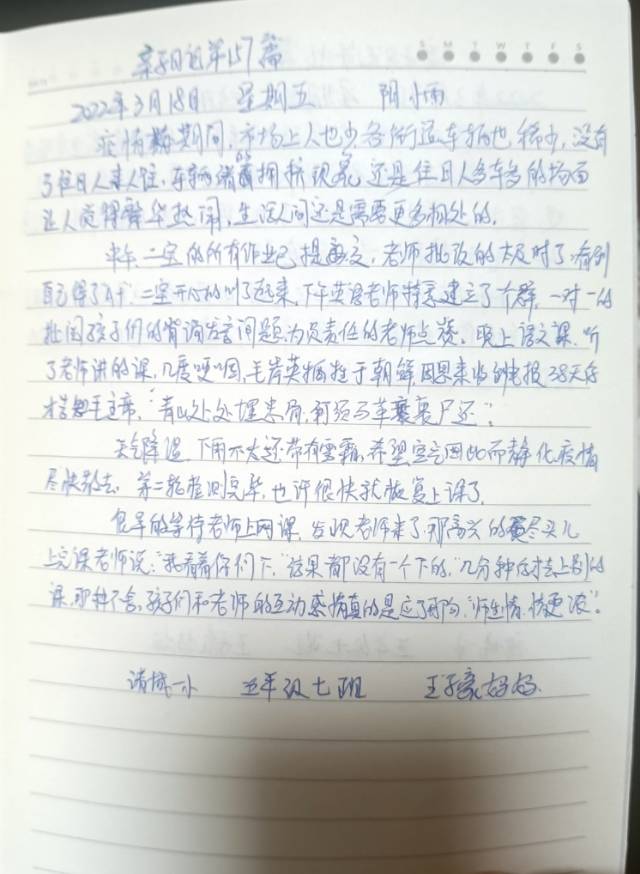 亲子日记第157篇
2022年3月18日 星期五 阴小雨
疫情期间,市场上人也少各街道车辆也稀少,没有
了往日人来人往,车辆诸多拥挤现象,还是往日人多车多的场面
让人觉得繁华热闹,生活人间还是需要更多相处的。
中午,二宝的所有作业已提交,老师批改的太及时了,看到
自己得了A+,二宝开心的叫了起来,下午英语老师特意建立了个群,一对一的
孩子们的背诵发音问题,为负责任的老师点赞。晚上语文课,听
了老师讲的课,几度哽咽,毛岸英牺牲于朝鲜,周恩来收到电报38天后
才告知毛主席,“青山处处埋忠骨,何须马革裹尸还”。
天气降温,下雨不大还带有雪霜,希望空气因此而静化,疫情
尽快散去,第二轮检测完毕,也许很快就恢复上课了。
包早的等待老师上网课,发现老师来了,那高兴的劲尽头儿
上完课老师说:“我看着你们下,”结果都没有一个下的,”几分钟后才去上别的
课,那种不舍,孩子们和老师的互动感情真的是应了那句,“师生情,情更浓”。
诸城一小 五年级七班 王子豪妈妈